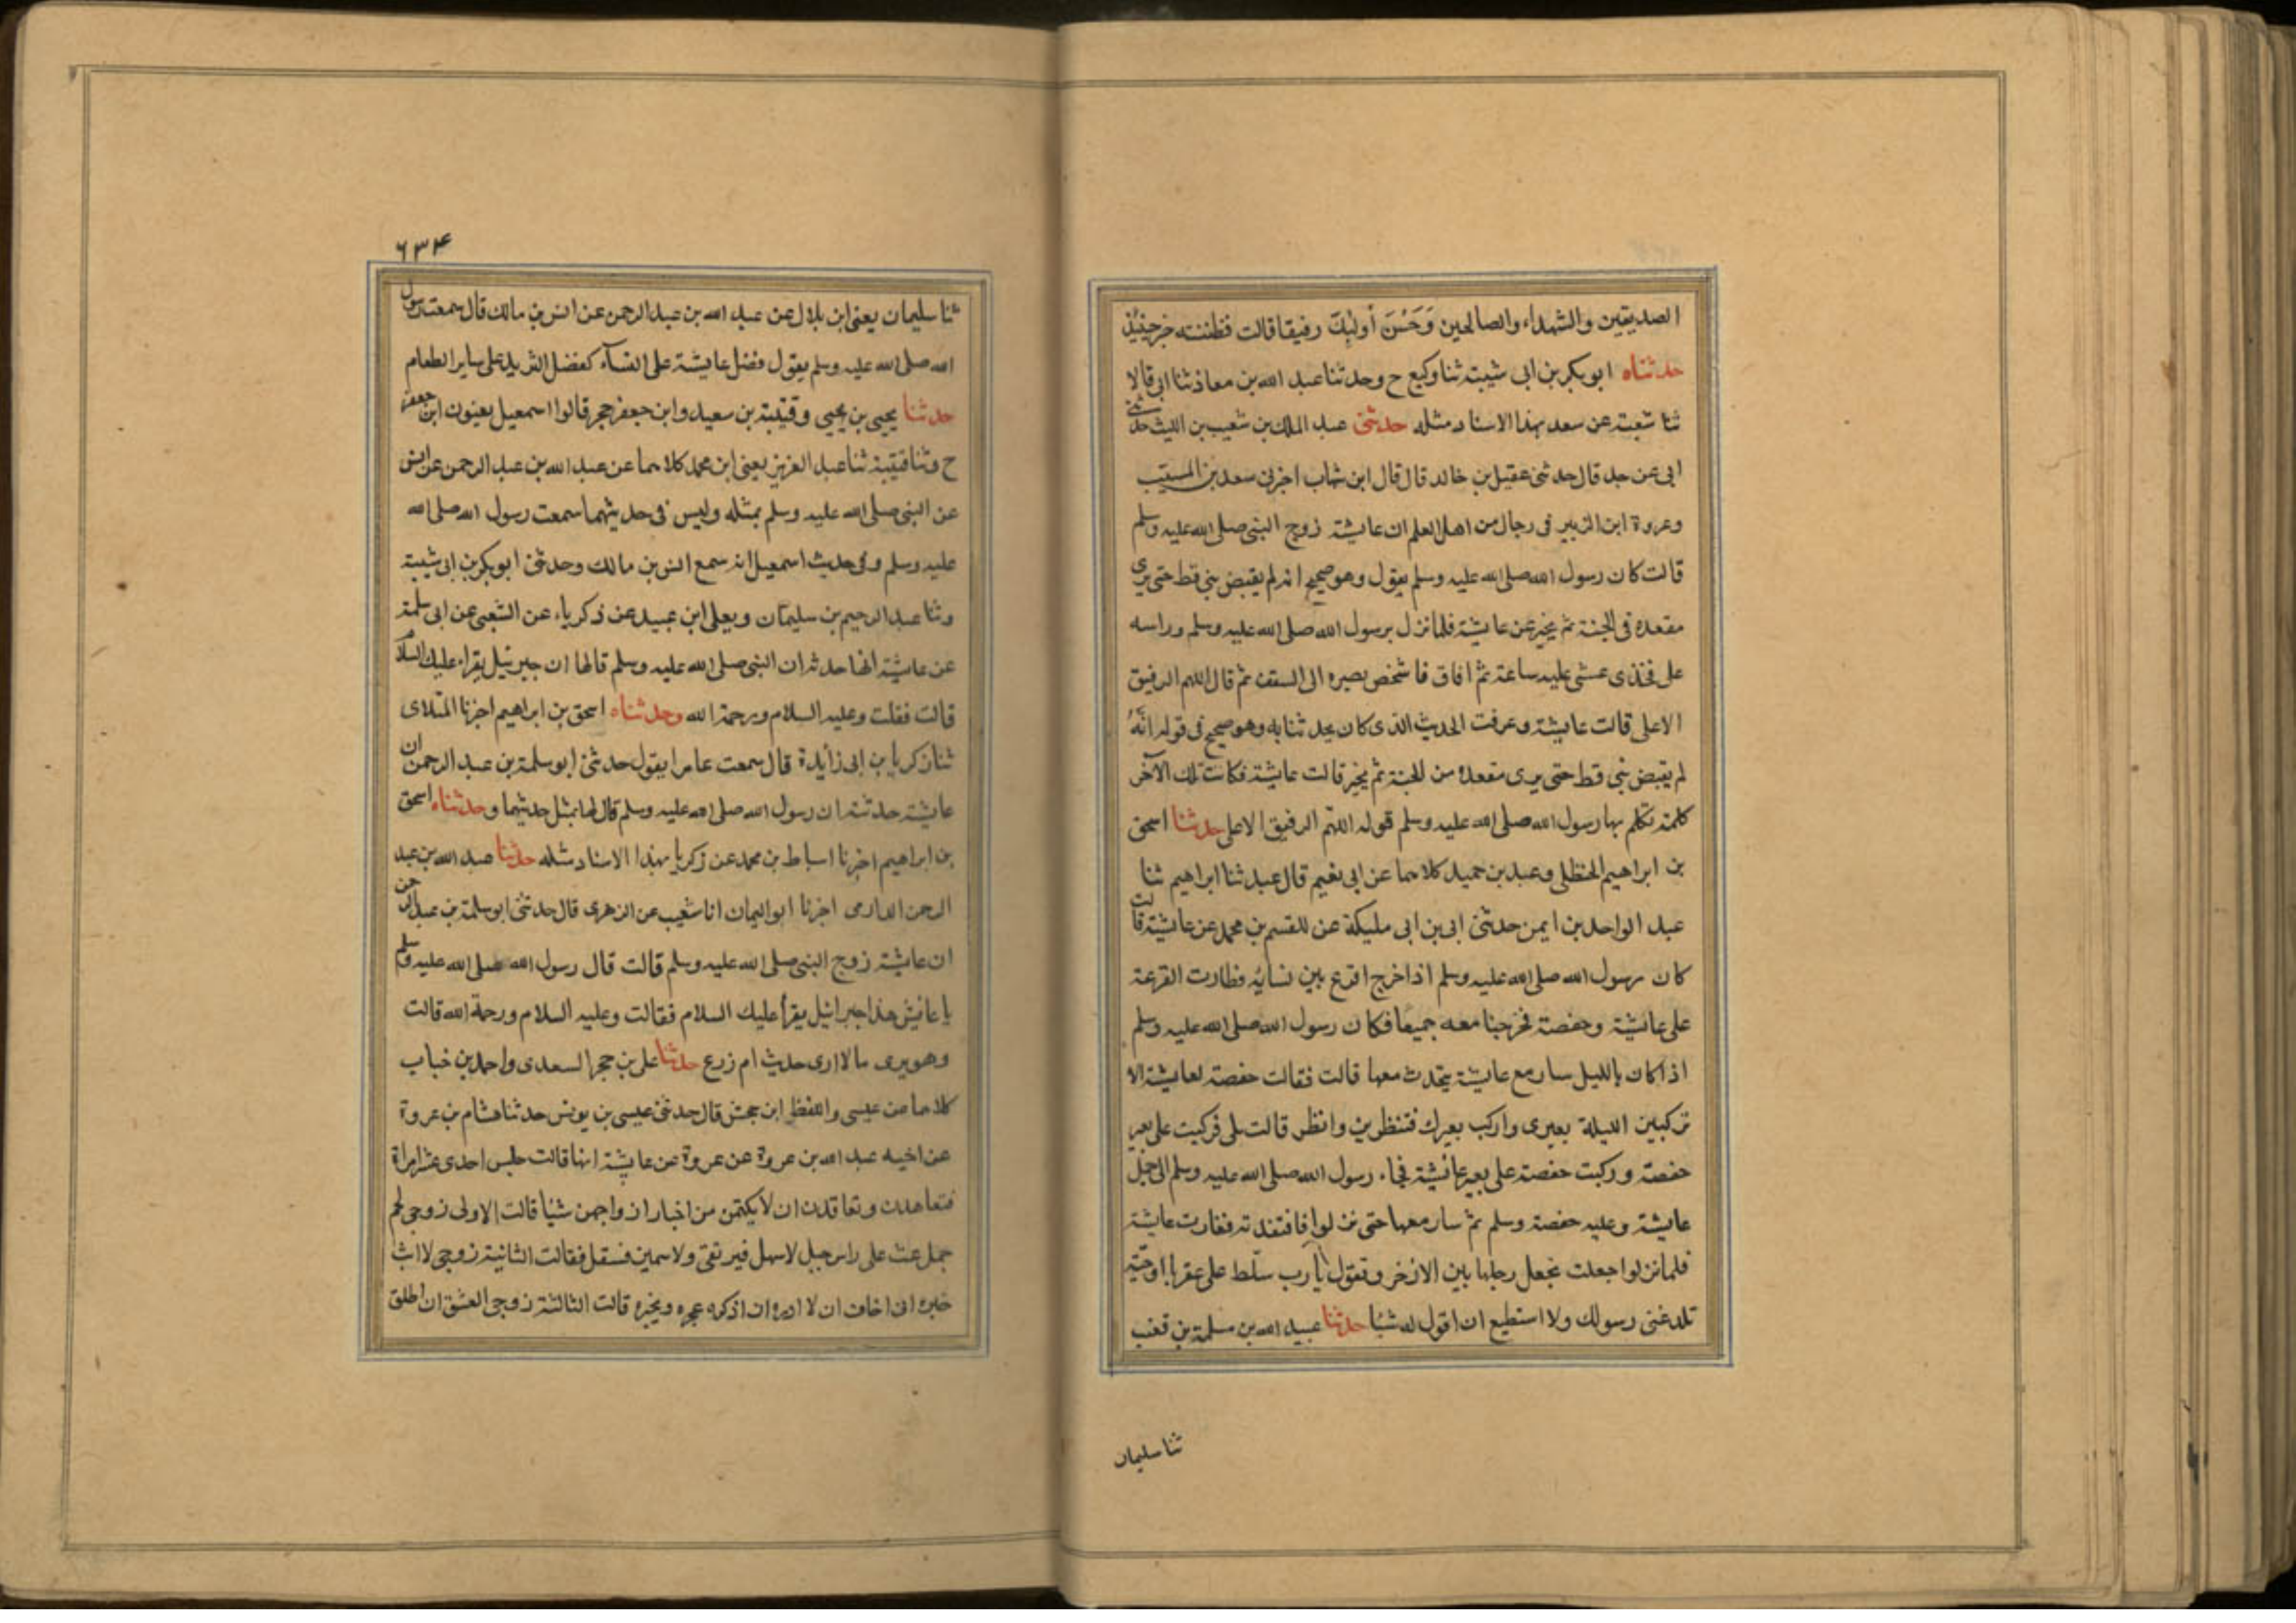 الصديقين والشهداء والصالحين وَحَسُنَ أولئِكَ رفيقا قالت فظننته خير حينئذ
حدثناه ابو بكر بن ابى شيبة ثنا وكيع ح وحدثنا عبد الله بن معاذ ثنا ابى قالا
ثنا شعبة عن سعد بهذا الاسناد مثله حدثنى عبد الملك بن شعيب بن الليث حدثنى
ابى عن جد قال حدثنى عقيل بن خالد قال قال ابن شهاب اخبرنى سعد بن المسيب
وعروة ابن الزبير فى رجال من اهل العلم ان عايشة زوج النبى صلى الله عليه وسلم
قالت كان رسول الله صلى الله عليه وسلم يقول وهو صحيح انه لم يقبض نبى قط حتى يرى
مقعده فى الجنة ثم يخير عن عايشة فلما نزل برسول الله صلى الله عليه وسلم وراسه
على فخذى عشى عليه ساعة ثم افاق فاشخص بصره الى السقف ثم قال اللهم الرفيق
الاعلى قالت عايشة وعرفت الحديث الذى كان يحدثنا به وهو صحيح فى قوله انَّهُ
لم يقبض نبى قط حتى يرى مقعده من الجنة ثم يخير قالت عايشة فكانت تلك الآخر
كلمة تكلم بها رسول الله صلى الله عليه وسلم قوله اللهم الرفيق الاعلى حدثنا اسحق
بن ابراهيم الحنظلى وعبد بن حميد كلاهما عن ابى نعيم قال عبد ثنا ابراهيم ثنا
عبد الواحد بن ايمن حدثنى ابى بن ابى مليكة عن القسم بن محمد عن عايشة قالت
كان رسول الله صلى الله عليه وسلم اذا خرج اقرع بين نسائه فطارت القرعة
على عائشة وحفصة فخرجنا معه جميعا فكان رسول الله صلى الله عليه وسلم
اذا كان بالليل سار مع عايشة يتحدث معها قالت فقالت حفصة لعايشة الا
تركبين الليلة بعيرى واركب بعيرك فتنظرين وانظر قالت بلى فركبت على بعير
حفصة وركبت حفصة على بعير عائشة فجاء رسول الله صلى الله عليه وسلم الى جمل
عايشة وعليه حفصة وسلم ثم سار معها حتى نزلوا فافتقدته فغارت عايشة
فلما نزلوا جعلت تجعل رجلها بين الاذخر وتقول يا رب سلّط على عقربا اوحيّة
تلدغنى رسولك ولا استطيع ان اقول له شيئا حدثنا عبيد الله بن مسلمة بن قعنب
ثنا سليمان
٦٣٤
ثنا سليمان يعنى ابن بلال عن عبد الله بن عبد الرحمن عن انس بن مالك قال سمعت رسول
الله صلى الله عليه وسلم يقول فضل عايشة على النسآء كفضل الثريد على ساير الطعام
حدثنا يحيى بن يحيى وقتيبة بن سعيد وابن جعفر حجر قالوا اسمعيل يعنون ابن جعفر
ح وثنا قتيبة ثنا عبد العزيز يعنى ابن محمد كلاهما عن عبد الله بن عبد الرحمن عن انس
عن النبى صلى الله عليه وسلم بمثله وليس فى حديثهما سمعت رسول الله صلى الله
عليه وسلم وفى حديث اسمعيل انه سمع انس بن مالك وحدثنى ابو بكر بن ابى شيبة
وثنا عبد الرحيم بن سليمان ويعلى ابن عبيد عن زكرياء عن الشعبى عن ابى سلمة
عن عايشة انها حدثه ان النبى صلى الله عليه وسلم قال لها ان جبرئيل يقراء عليك السلام
قالت فقلت وعليه السلام ورحمة الله وحدثناه اسحق بن ابراهيم اخبرنا الملاى
ثنا زكريا بن ابى زايدة قال سمعت عامرا يقول حدثنى ابو سلمة بن عبد الرحمن ان
عايشة حدثته ان رسول الله صلى الله عليه وسلم قال لها بمثل حديثهما وحدثناه اسحق
بن ابراهيم اخبرنا اسباط بن محمد عن زكريا بهذا الاسناد مثله حدثنا عبد الله بن عبد
الرحمن الدارمى اخبرنا ابو اليمان انا شعيب عن الزهرى قال حدثنى ابو سلمة بن عبد الرحمن
ان عايشة زوج النبى صلى الله عليه وسلم قالت قال رسول الله صلى الله عليه وسلم
يا عائش هذا جبرائيل يقرأ عليك السلام فقالت وعليه السلام ورحمة الله قالت
وهو يرى مالا ارى حديث ام زرع حدثنا على بن حجر السعدى واحمد بن خباب
كلاهما عن عيسى واللفظ ابن حجش قال حدثنى عيسى بن يونس حدثنا هشام بن عروة
عن اخيه عبد الله بن عروة عن عروة عن عايشة انها قالت جلس احدى عشر امراة
فتعاهدن وتعاقدن ان لا يكتمن من اخبار ازواجهن شيئا قالت الاولى زوجى لحم
جمل غث على راس جبل لا سهل فيرتقى ولا سمين فسقل فقالت الثانية زوجى لا ابث
خبره انى اخاف ان لا اذره ان اذكره عجره وبجره قالت الثالثة زوجى العشق ان اطلق